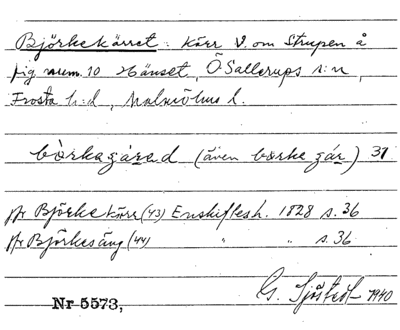 Björkekärret: kärr V. om Strupen å
fig num. 10 Hänset, Ö Sallerups s:n,
Frosta h:d, Malmöhus l.
(även 31
jfr Björkekärr (43) Enskiftesh. 1828 s. 36
jfr Björkesäng (44) " " s. 36
G. Sjöstedt 1940
Nr 5573,